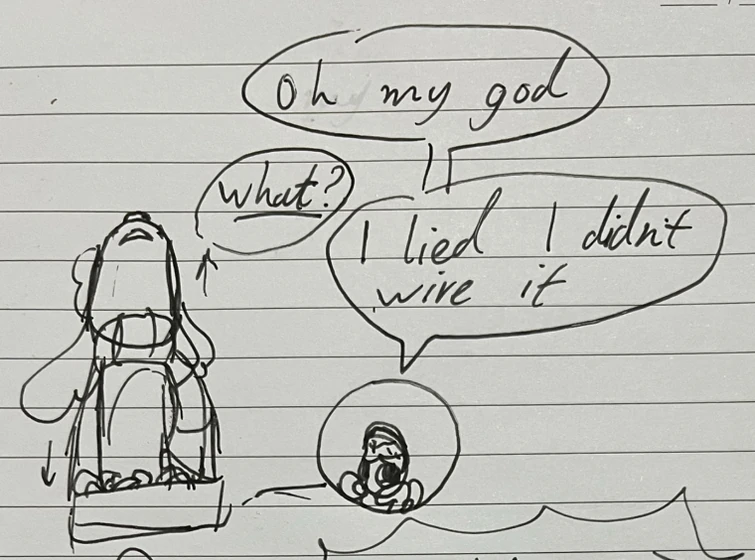 Oh my god
what?
I lied I didn't
wire it